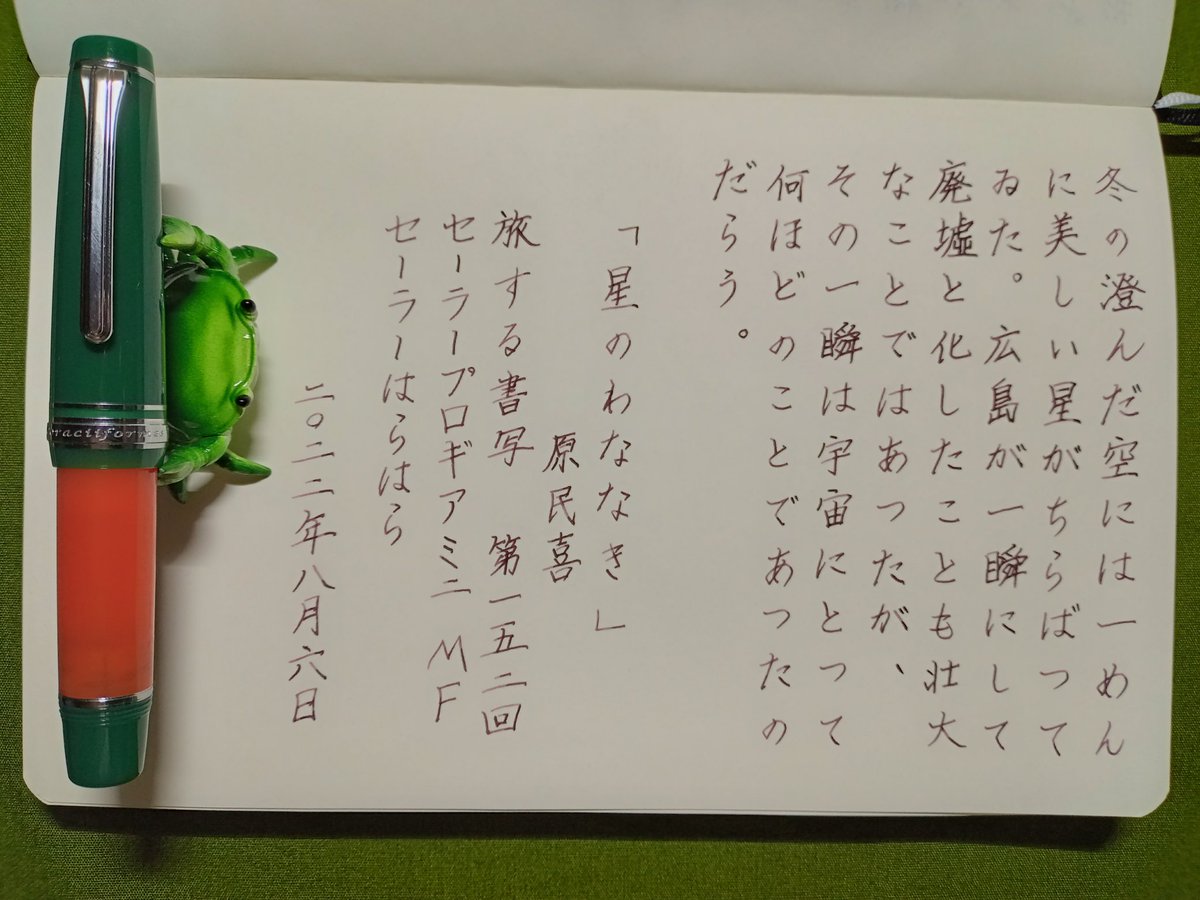 冬の澄んだ空には一めん
に美しい星がちらばつて
ゐた。広島が一瞬にして
廃墟と化したことも壮大
なことではあつたが、
その一瞬は宇宙にとつて
何ほどのことであつたの
だらう。
「星のわななき」
原民喜
旅する書写 第一五二回
セーラープロギアミニ MF
セーラーはらはら
二〇二二年八月六日